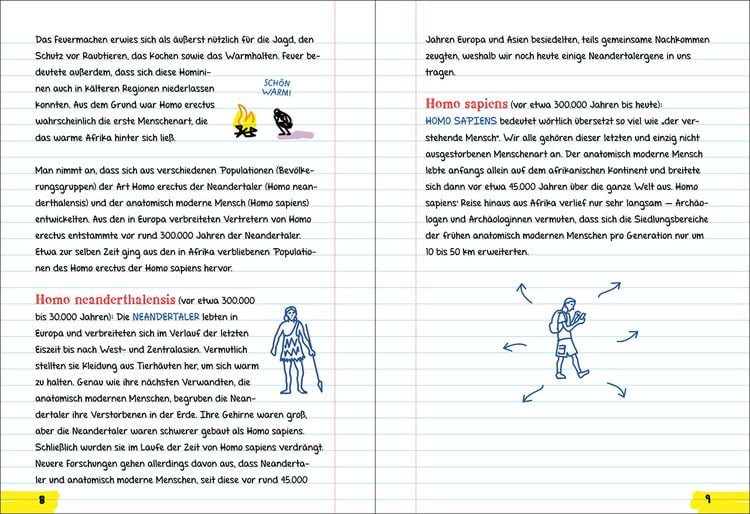 Das Feuermachen erwies sich als äußerst nützlich für die Jagd, den
Schutz vor Raubtieren, das Kochen sowie das Warmhalten. Feuer be-
deutete außerdem, dass sich diese Homini-
nen auch in kälteren Regionen niederlassen
konnten. Aus dem Grund war Homo erectus
wahrscheinlich die erste Menschenart, die
das warme Afrika hinter sich ließ.
SCHÖN
WARM!
Man nimmt an, dass sich aus verschiedenen Populationen (Bevölke-
rungsgruppen) der Art Homo erectus der Neandertaler (Homo nean-
derthalensis) und der anatomisch moderne Mensch (Homo sapiens)
entwickelten. Aus den in Europa verbreiteten Vertretern von Homo
erectus entstammte vor rund 300.000 Jahren der Neandertaler.
Etwa zur selben Zeit ging aus den in Afrika verbliebenen Populatio-
nen des Homo erectus der Homo sapiens hervor.
Homo neanderthalensis (vor etwa 300.000
bis 30.000 Jahren): Die NEANDERTALER lebten in
Europa und verbreiteten sich im Verlauf der letzten
Eiszeit bis nach West- und Zentralasien. Vermutlich
stellten sie Kleidung aus Tierhäuten her, um sich warm
zu halten. Genau wie ihre nächsten Verwandten, die
anatomisch modernen Menschen, begruben die Nean-
dertaler ihre Verstorbenen in der Erde. Ihre Gehirne waren groß,
aber die Neandertaler waren schwerer gebaut als Homo sapiens.
Schließlich wurden sie im Laufe der Zeit von Homo sapiens verdrängt.
Neuere Forschungen gehen allerdings davon aus, dass Neanderta-
ler und anatomisch moderne Menschen, seit diese vor rund 45.000
8
Jahren Europa und Asien besiedelten, teils gemeinsame Nachkommen
zeugten, weshalb wir noch heute einige Neandertalergene in uns
tragen.
Homo sapiens (vor etwa 300.000 Jahren bis heute):
HOMO SAPIENS bedeutet wörtlich übersetzt so viel wie „der ver-
stehende Mensch“. Wir alle gehören dieser letzten und einzig nicht
ausgestorbenen Menschenart an. Der anatomisch moderne Mensch
lebte anfangs allein auf dem afrikanischen Kontinent und breitete
sich dann vor etwa 45.000 Jahren über die ganze Welt aus. Homo
sapiens' Reise hinaus aus Afrika verlief nur sehr langsam – Archäo-
logen und Archäologinnen vermuten, dass sich die Siedlungsbereiche
der frühen anatomisch modernen Menschen pro Generation nur um
10 bis 50 km erweiterten.
9